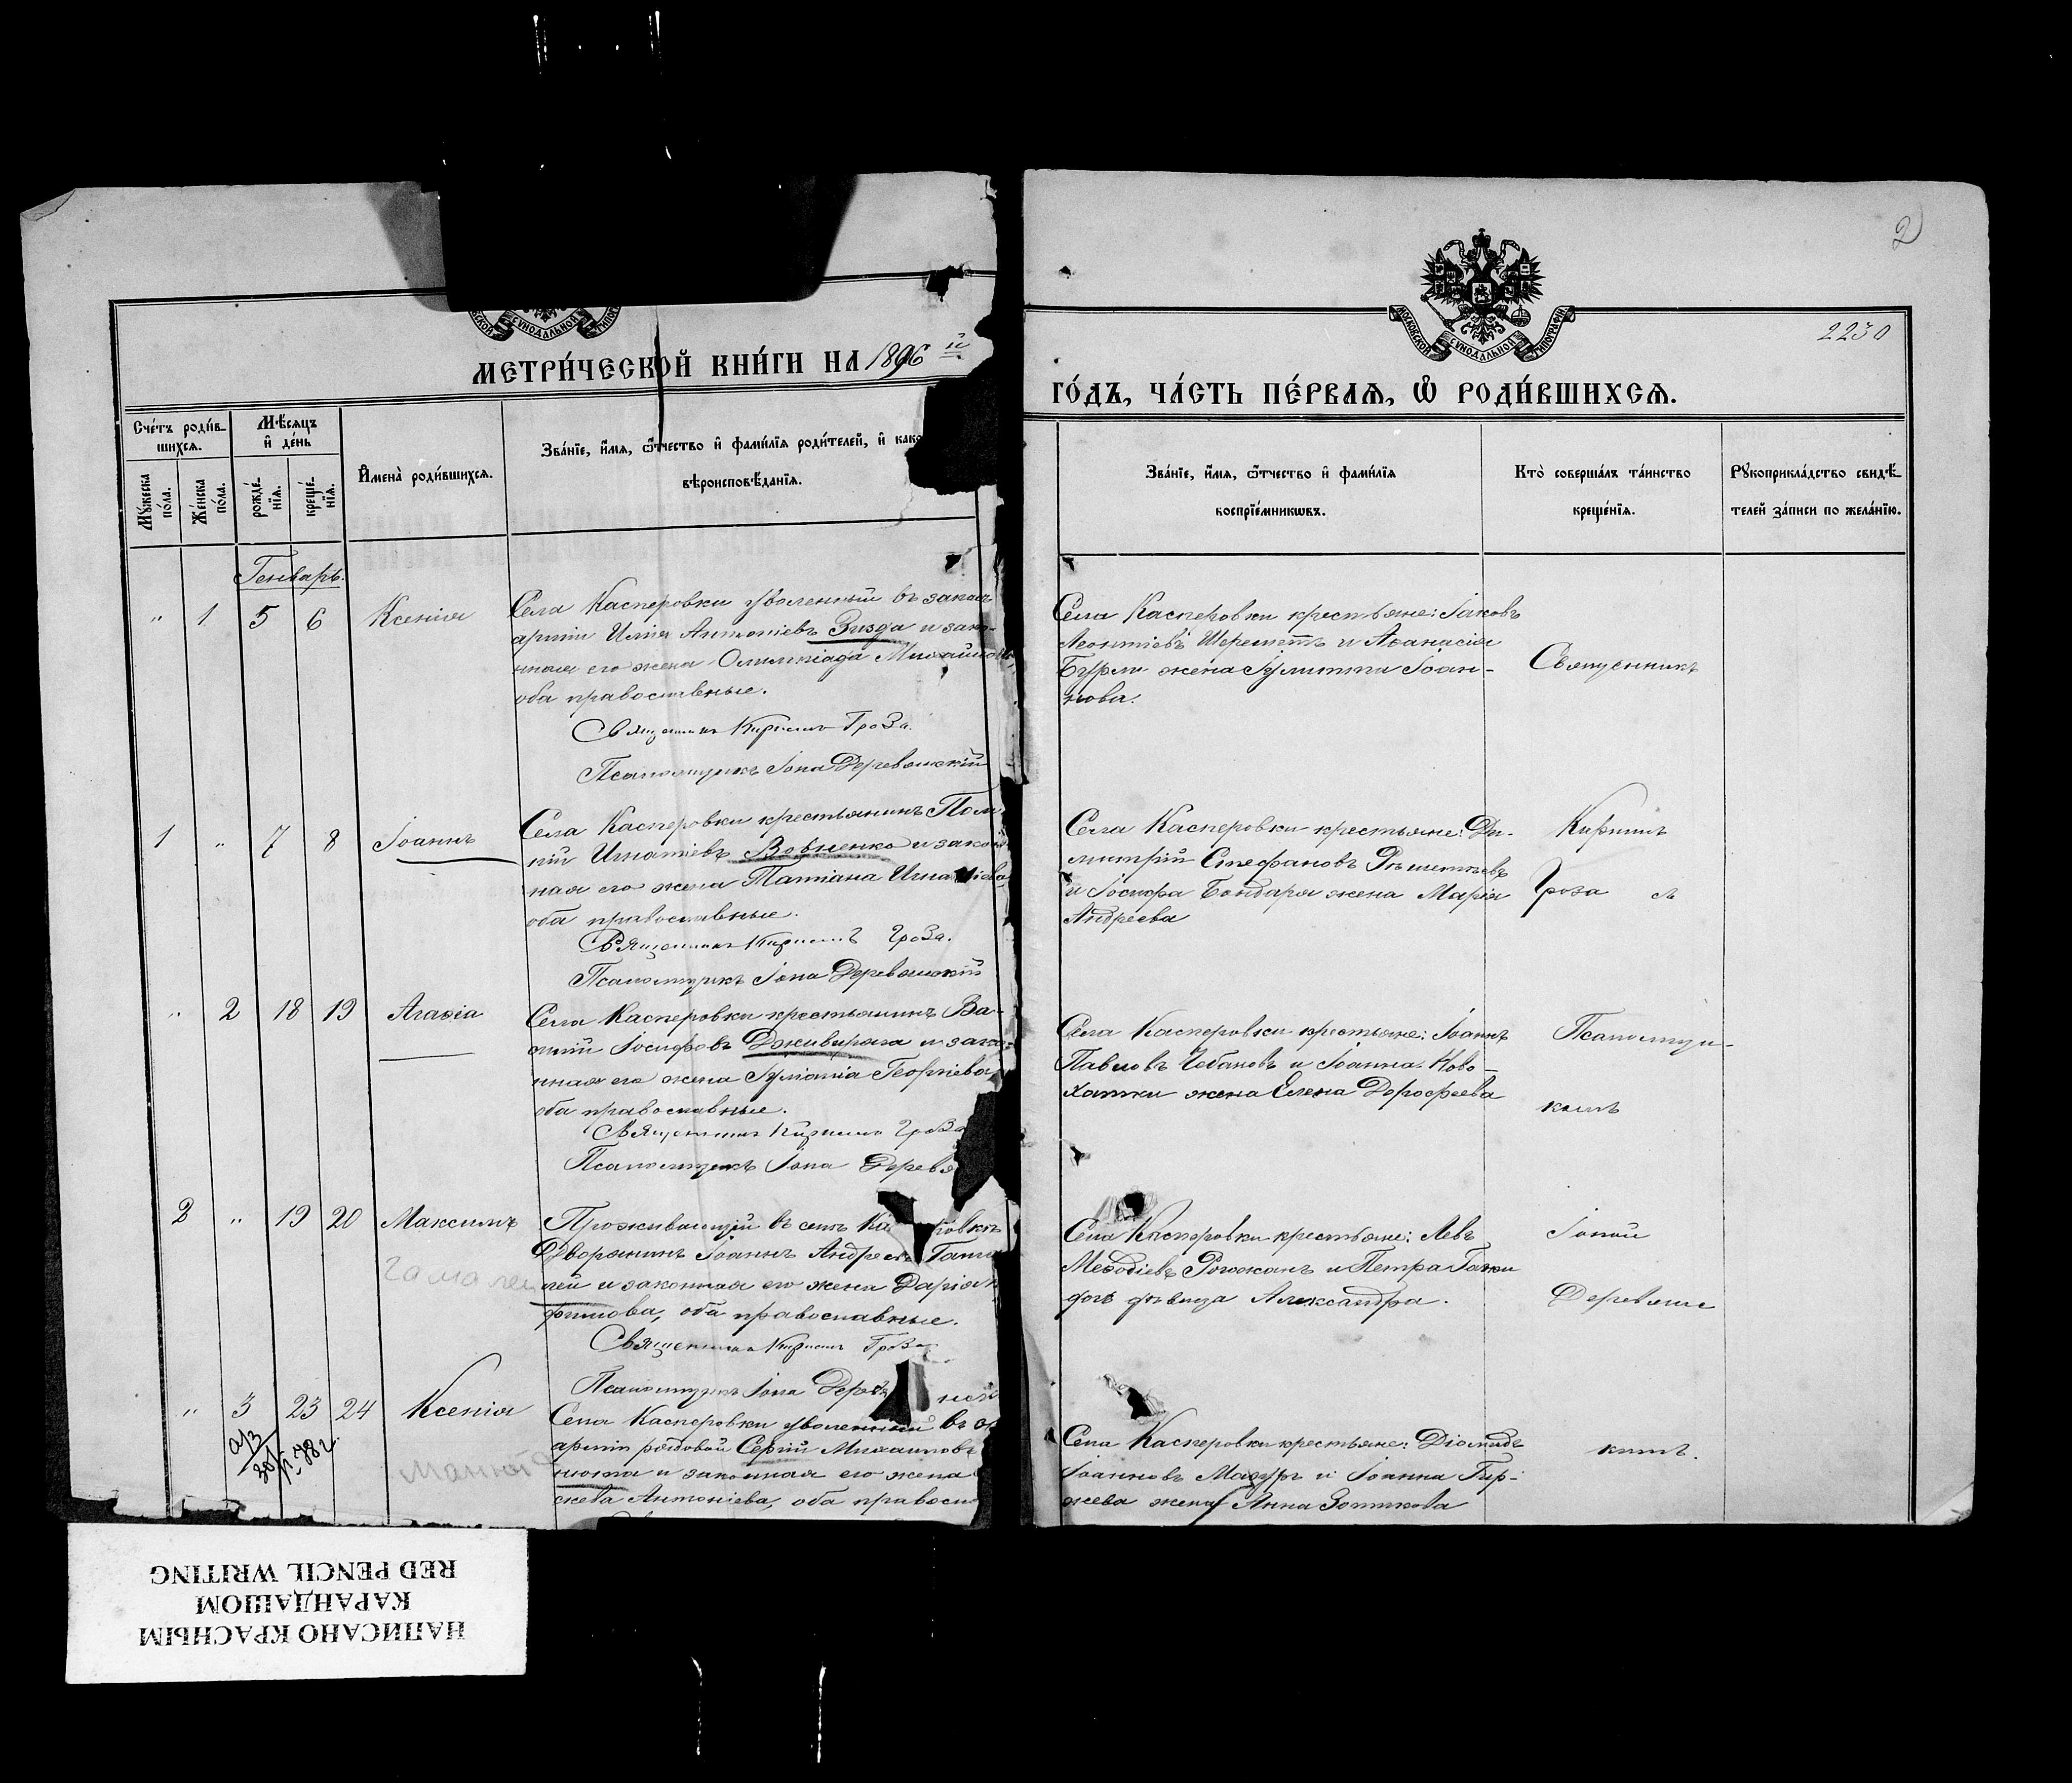 2
2230
МОСКОВСКОЙ СѴНОДАЛЬНОЙ ТИПОГРАФІИ
МЕТРИ́ЧЕСКОЙ КНИ́ГИ НА 1896 й
ГО́ДЪ, ЧА́СТЬ ПЕ́РВАЯ, Ѽ РОДИ́ВШИХСЯ.
Сче́тъ роди́в-
шихся.
Мѣ́сяцъ
и҆ де́нь
Му́жеска
по́ла.
Же́нска
по́ла.
рожде́-
нїя.
креще́-
нїя.
И҆мена̀ роди́вшихся.
Зва́нїе, и҆́мя, ѻ҆́тчество и҆ фами́лїя роди́телей, и҆ како
вѣроисповѣ́данїя.
Зва́нїе, и҆́мя, ѻ҆́тчество и҆ фами́лїя
воспрїе́мникωвъ.
Кто̀ соверша́лъ та́инство
креще́нїя.
Рꙋкоприкла́дство свидѣ́-
телей за́писи по жела́нїю.
Генварь.
" 1 5 6 Ксенія
Села Касперовки уволенный въ запас
арміи Илія Антоніевъ Гнизда и закон-
ная его жена Олимпіада Михайлова
оба православные.
Священникъ Кириллъ Гроза.
Псаломщикъ Іона Деревянскій
Села Касперовки крестьяне: Іаковъ
Леонтіевъ Шереметъ и Аѳанасія
Бурли жена Іулитта Іоан-
нова.
Священникъ
1 " 7 8 Іоаннъ
Села Касперовки крестьянинъ
Игнатіевъ Вовненко и закон
ная его жена Татіана Игнатіева
оба православные.
Священникъ Кириллъ Гроза.
Псаломщикъ Іона Деревянскій
Села Касперовки крестьяне: Ди-
митрій Стефановъ
и Іосифа Бондаря жена Марія
Андреева
Кириллъ
Гроза съ
" 2 18 19 Агаѳія
Села Касперовки крестьянинъ Ва-
силій Іосифовъ Дживирага и закон-
ная его жена Іуліанія Георгіева
оба православные.
Священникъ Кириллъ Гроза
Псаломщикъ Іона Деревя
Села Касперовки крестьяне: Іоаннъ
Павловъ Чебановъ и Іоанна Ново-
хатки жена Елена Дороѳеева
Псаломщи-
комъ
2 " 19 20 Максимъ
Гамалей
Проживающій въ селѣ Ка ровкѣ
Дворянинъ Іоаннъ Андреевъ Гама
лей и законная его жена Дарія
фимова, оба православные.
Священникъ Кириллъ Гроза
Псаломщикъ Іона Дерев нскій
Села Касперовки крестьяне: Левъ
Меѳодіевъ Рожканъ и Петра
дочь дѣвица Александра.
Іоной
Деревянс
" 3 23 24 Ксенія
Села Касперовки уволенный въ
арміи рядовой Сергій Михаиловъ
нюта и законная его жена
сѣева Антоніева, оба правосл
Села Касперовки крестьяне: Діомидъ
Іоанновъ Мазуръ и Іоанна Гир-
жева жена Анна Зотикова
кимъ.
НАПИСАНО КРАСНЫМ
КАРАНДАШОМ
RED PENCIL WRITING